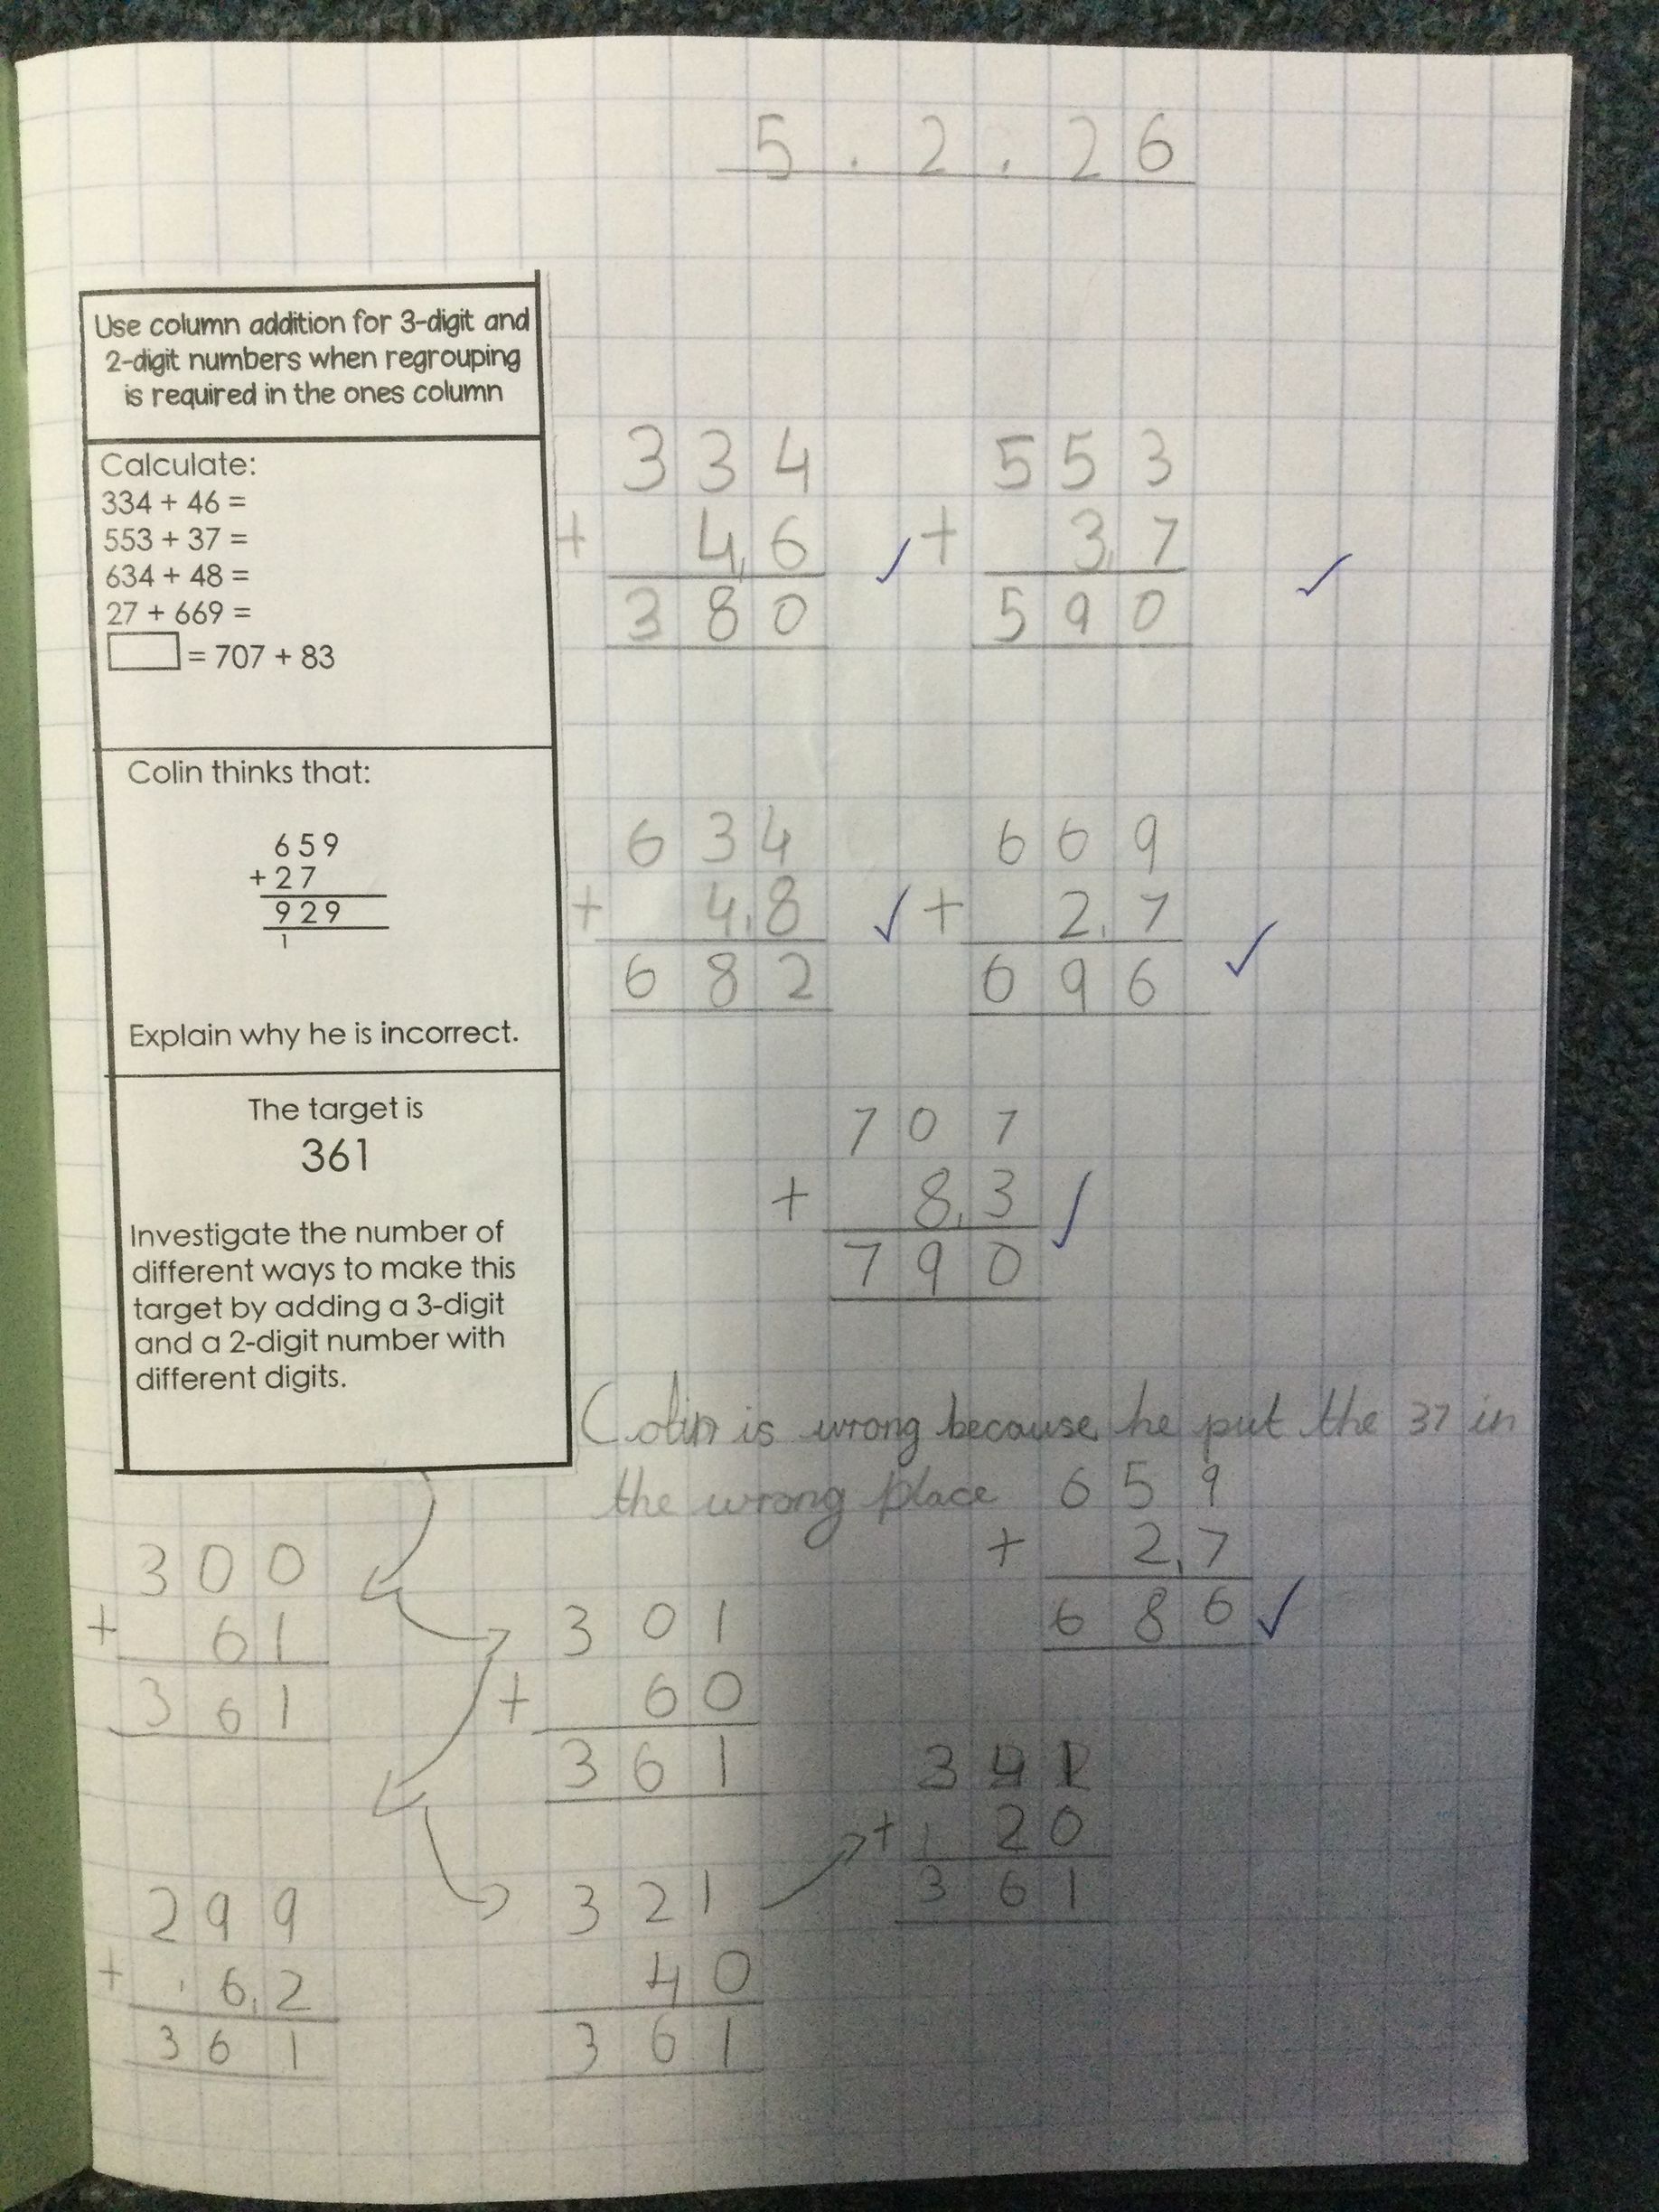 5 . 2 . 26
Use column addition for 3-digit and
2-digit numbers when regrouping
is required in the ones column
Calculate:
334 + 46 =
553 + 37 =
634 + 48 =
27 + 669 =
= 707 + 83
Colin thinks that:
659
+ 27
929
1
Explain why he is incorrect.
The target is
361
Investigate the number of
different ways to make this
target by adding a 3-digit
and a 2-digit number with
different digits.
334
+ 4 1 6
380
553
+ 3 1 7
590
634
+ 4 1 8
682
669
+ 2 1 7
696
707
+ 8 1 3
790
Colin is wrong because he put the 37 in
the wrong place
659
+ 2 1 7
686
300
+ 61
361
301
+ 60
361
299
+ 1 6 1 2
361
321
40
361
+ 1 20
361